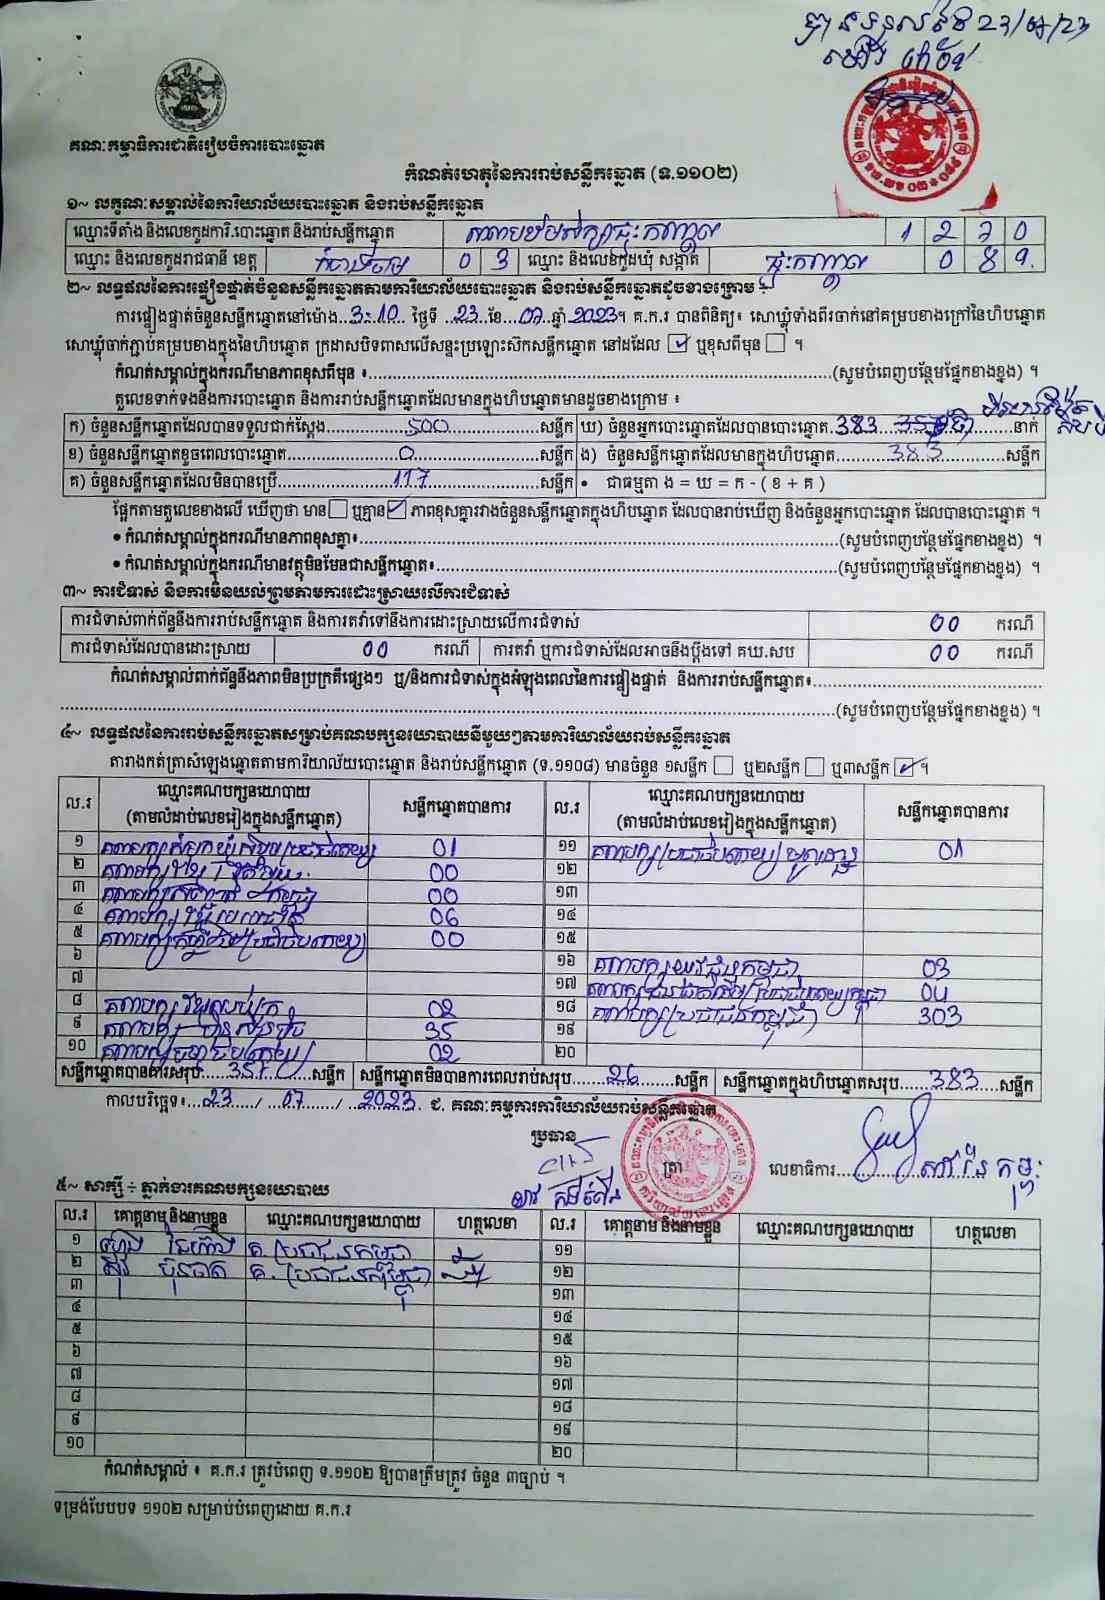 បានទទួលថ្ងៃ 23/07/23
គណៈកម្មាធិការជាតិរៀបចំការបោះឆ្នោត
កំណត់ហេតុនៃការរាប់សន្លឹកឆ្នោត (ទ.១១០២)
១~ លក្ខណៈសម្គាល់នៃការិយាល័យបោះឆ្នោត និងរាប់សន្លឹកឆ្នោត
ឈ្មោះទីតាំង និងលេខកូដការិ.បោះឆ្នោត និងរាប់សន្លឹកឆ្នោត សាលាបឋមសិក្សាផ្ទះកណ្តាល 1 2 7 0
ឈ្មោះ និងលេខកូដរាជធានី ខេត្ត កំពង់ចាម 0 3 ឈ្មោះ និងលេខកូដឃុំ សង្កាត់ ផ្ទះកណ្តាល 0 8 9
២~ លទ្ធផលនៃការផ្ទៀងផ្ទាត់ចំនួនសន្លឹកឆ្នោតតាមការិយាល័យបោះឆ្នោត និងរាប់សន្លឹកឆ្នោតដូចខាងក្រោម ÷
ការផ្ទៀងផ្ទាត់ចំនួនសន្លឹកឆ្នោតនៅម៉ោង 3:10 ថ្ងៃទី 23 ខែ 07 ឆ្នាំ 2023។ គ.ក.រ បានពិនិត្យ៖ សោឃ្លុំទាំងពីរចាក់នៅគម្របខាងក្រៅនៃហិបឆ្នោត
សោឃ្លុំចាក់ភ្ជាប់គម្របខាងក្នុងនៃហិបឆ្នោត ក្រដាសបិទពាសលើសន្ទះប្រឡោះស៊កសន្លឹកឆ្នោត នៅដដែល ☑ ឬខុសពីមុន ☐ ។
កំណត់សម្គាល់ក្នុងករណីមានភាពខុសពីមុន ៖ (សូមបំពេញបន្ថែមផ្នែកខាងខ្នង) ។
តួលេខទាក់ទងនឹងការបោះឆ្នោត និងការរាប់សន្លឹកឆ្នោតដែលមានក្នុងហិបឆ្នោតមានដូចខាងក្រោម ៖
ក) ចំនួនសន្លឹកឆ្នោតដែលបានទទួលជាក់ស្តែង 500 សន្លឹក ឃ) ចំនួនអ្នកបោះឆ្នោតដែលបានបោះឆ្នោត 383 នាក់
ខ) ចំនួនសន្លឹកឆ្នោតខូចពេលបោះឆ្នោត 0 សន្លឹក ង) ចំនួនសន្លឹកឆ្នោតដែលមានក្នុងហិបឆ្នោត 383 សន្លឹក
គ) ចំនួនសន្លឹកឆ្នោតដែលមិនបានប្រើ 117 សន្លឹក • ជាធម្មតា ង = ឃ = ក - ( ខ + គ )
ផ្អែកតាមតួលេខខាងលើ ឃើញថា មាន ☐ ឬគ្មាន ☑ ភាពខុសគ្នារវាងចំនួនសន្លឹកឆ្នោតក្នុងហិបឆ្នោត ដែលបានរាប់ឃើញ និងចំនួនអ្នកបោះឆ្នោត ដែលបានបោះឆ្នោត ។
• កំណត់សម្គាល់ក្នុងករណីមានភាពខុសគ្នា៖ (សូមបំពេញបន្ថែមផ្នែកខាងខ្នង) ។
• កំណត់សម្គាល់ក្នុងករណីមានវត្ថុមិនមែនជាសន្លឹកឆ្នោត៖ (សូមបំពេញបន្ថែមផ្នែកខាងខ្នង) ។
៣~ ការជំទាស់ និងការមិនយល់ព្រមតាមការដោះស្រាយលើការជំទាស់
ការជំទាស់ពាក់ព័ន្ធនឹងការរាប់សន្លឹកឆ្នោត និងការតវ៉ាទៅនឹងការដោះស្រាយលើការជំទាស់ 00 ករណី
ការជំទាស់ដែលបានដោះស្រាយ 00 ករណី ការតវ៉ា ឬការជំទាស់ដែលអាចនឹងប្តឹងទៅ គឃ.សប 00 ករណី
កំណត់សម្គាល់ពាក់ព័ន្ធនឹងភាពមិនប្រក្រតីផ្សេងៗ ឬ/និងការជំទាស់ក្នុងអំឡុងពេលនៃការផ្ទៀងផ្ទាត់ និងការរាប់សន្លឹកឆ្នោត៖
(សូមបំពេញបន្ថែមផ្នែកខាងខ្នង) ។
៤~ លទ្ធផលនៃការរាប់សន្លឹកឆ្នោតសម្រាប់គណបក្សនយោបាយនីមួយៗតាមការិយាល័យរាប់សន្លឹកឆ្នោត
តារាងកត់ត្រាសំឡេងឆ្នោតតាមការិយាល័យបោះឆ្នោត និងរាប់សន្លឹកឆ្នោត (ទ.១១០៨) មានចំនួន ១សន្លឹក ☐ ឬ២សន្លឹក ☐ ឬ៣សន្លឹក ☑ ។
ល.រ ឈ្មោះគណបក្សនយោបាយ (តាមលំដាប់លេខរៀងក្នុងសន្លឹកឆ្នោត) សន្លឹកឆ្នោតបានការ ល.រ ឈ្មោះគណបក្សនយោបាយ (តាមលំដាប់លេខរៀងក្នុងសន្លឹកឆ្នោត) សន្លឹកឆ្នោតបានការ
១ 01 ១១ គណបក្សប្រជាធិបតេយ្យមូលដ្ឋាន 01
២ គណបក្ស 00 ១២
៣ គណបក្ស 00 ១៣
៤ គណបក្ស 06 ១៤
៥ គណបក្ស 00 ១៥
៦ ១៦ គណបក្សយុវជនកម្ពុជា 03
៧ ១៧ 04
៨ គណបក្ស 02 ១៨ គណបក្សប្រជាជនកម្ពុជា 303
៩ គណបក្សហ្វ៊ុនស៊ិនប៉ិច 35 ១៩
១០ 02 ២០
សន្លឹកឆ្នោតបានការសរុប 357 សន្លឹក សន្លឹកឆ្នោតមិនបានការពេលរាប់សរុប 26 សន្លឹក សន្លឹកឆ្នោតក្នុងហិបឆ្នោតសរុប 383 សន្លឹក
កាលបរិច្ឆេទ៖ 23 / 07 / 2023 ជ. គណៈកម្មការការិយាល័យរាប់សន្លឹកឆ្នោត
ប្រធាន
ត្រា លេខាធិការ
៥~ សាក្សី ÷ ភ្នាក់ងារគណបក្សនយោបាយ
ល.រ គោត្តនាម និងនាមខ្លួន ឈ្មោះគណបក្សនយោបាយ ហត្ថលេខា ល.រ គោត្តនាម និងនាមខ្លួន ឈ្មោះគណបក្សនយោបាយ ហត្ថលេខា
១ គ. ប្រជាជនកម្ពុជា ១១
២ គ. ប្រជាជនកម្ពុជា ១២
៣ ១៣
៤ ១៤
៥ ១៥
៦ ១៦
៧ ១៧
៨ ១៨
៩ ១៩
១០ ២០
កំណត់សម្គាល់ ៖ គ.ក.រ ត្រូវបំពេញ ទ.១១០២ ឱ្យបានត្រឹមត្រូវ ចំនួន ៣ច្បាប់ ។
ទម្រង់បែបបទ ១១០២ សម្រាប់បំពេញដោយ គ.ក.រ